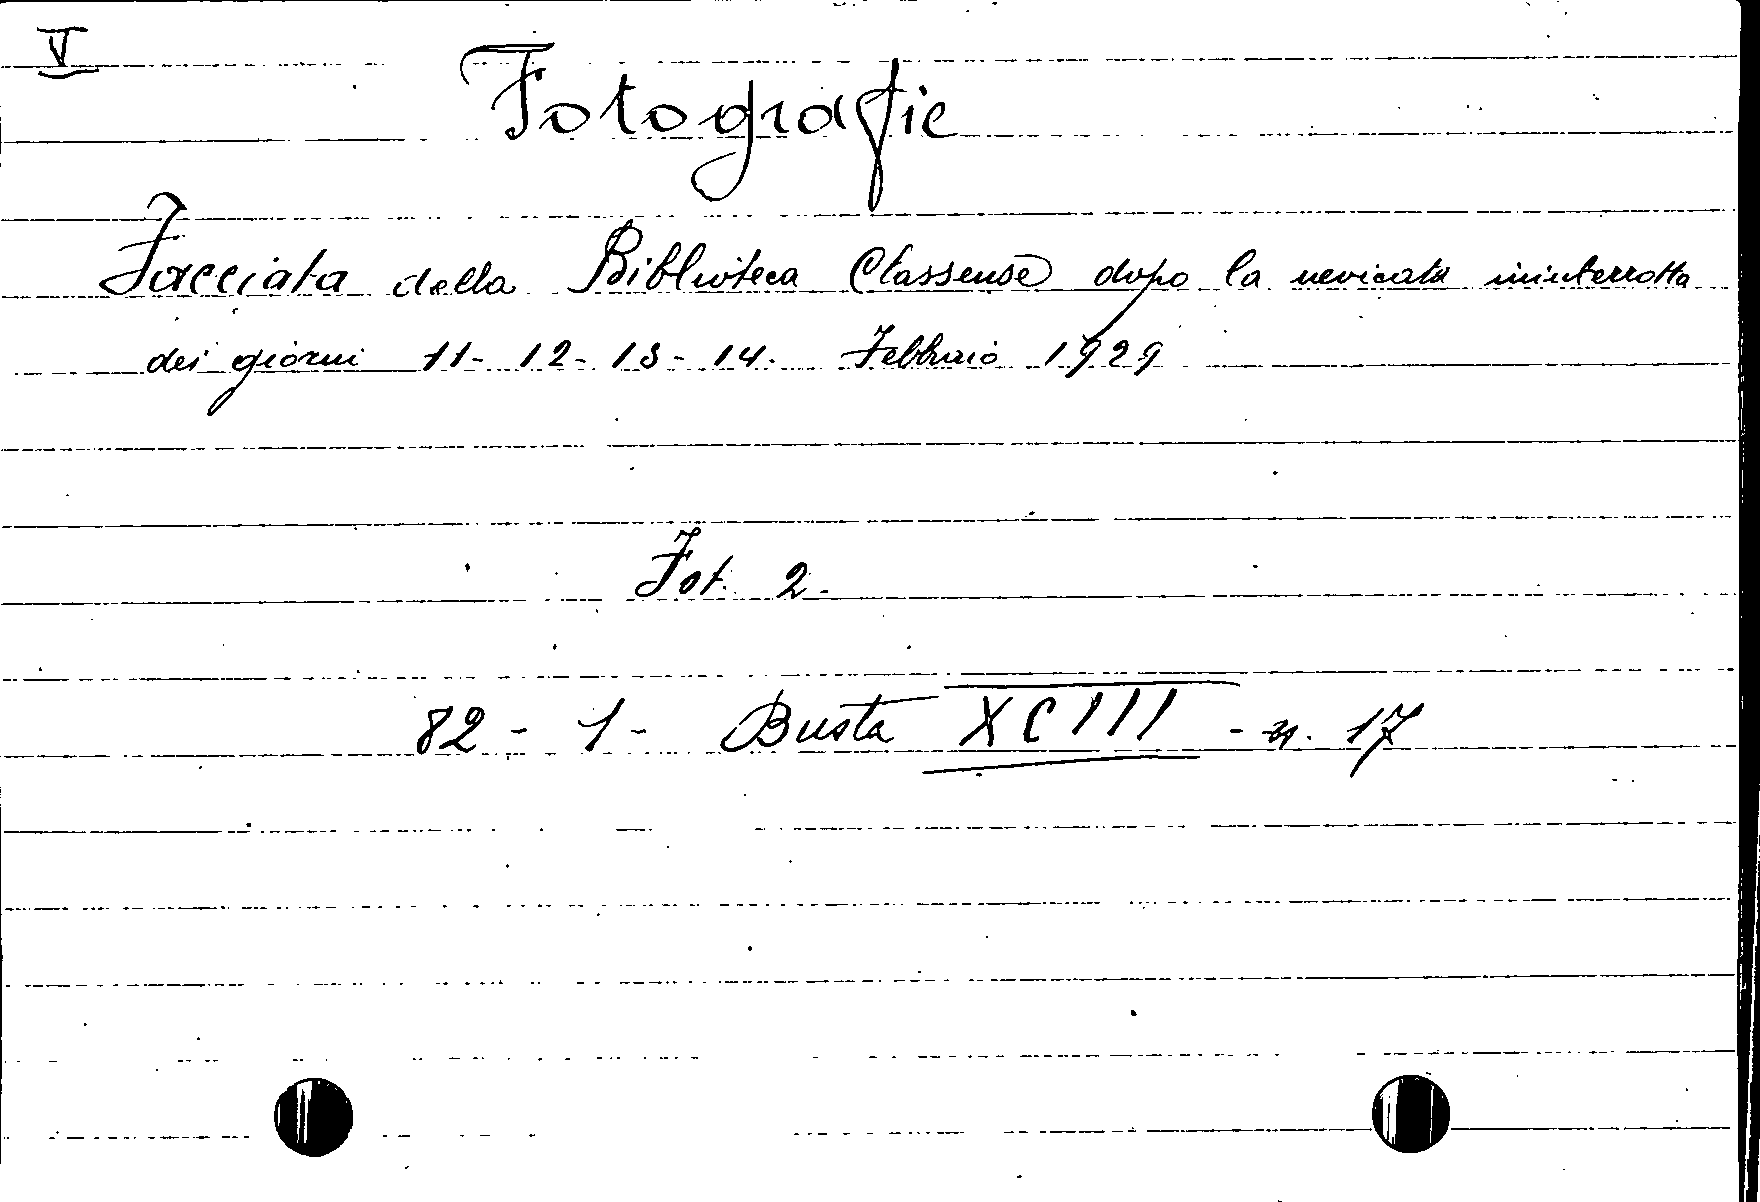 V
Fotografie
Facciata della Biblioteca Classense dopo la nevicata ininterrotta
dei giorni 11- 12- 13- 14. Febbraio 1929
Fot. 2.
82 - 1 - Busta XCIII - n. 17